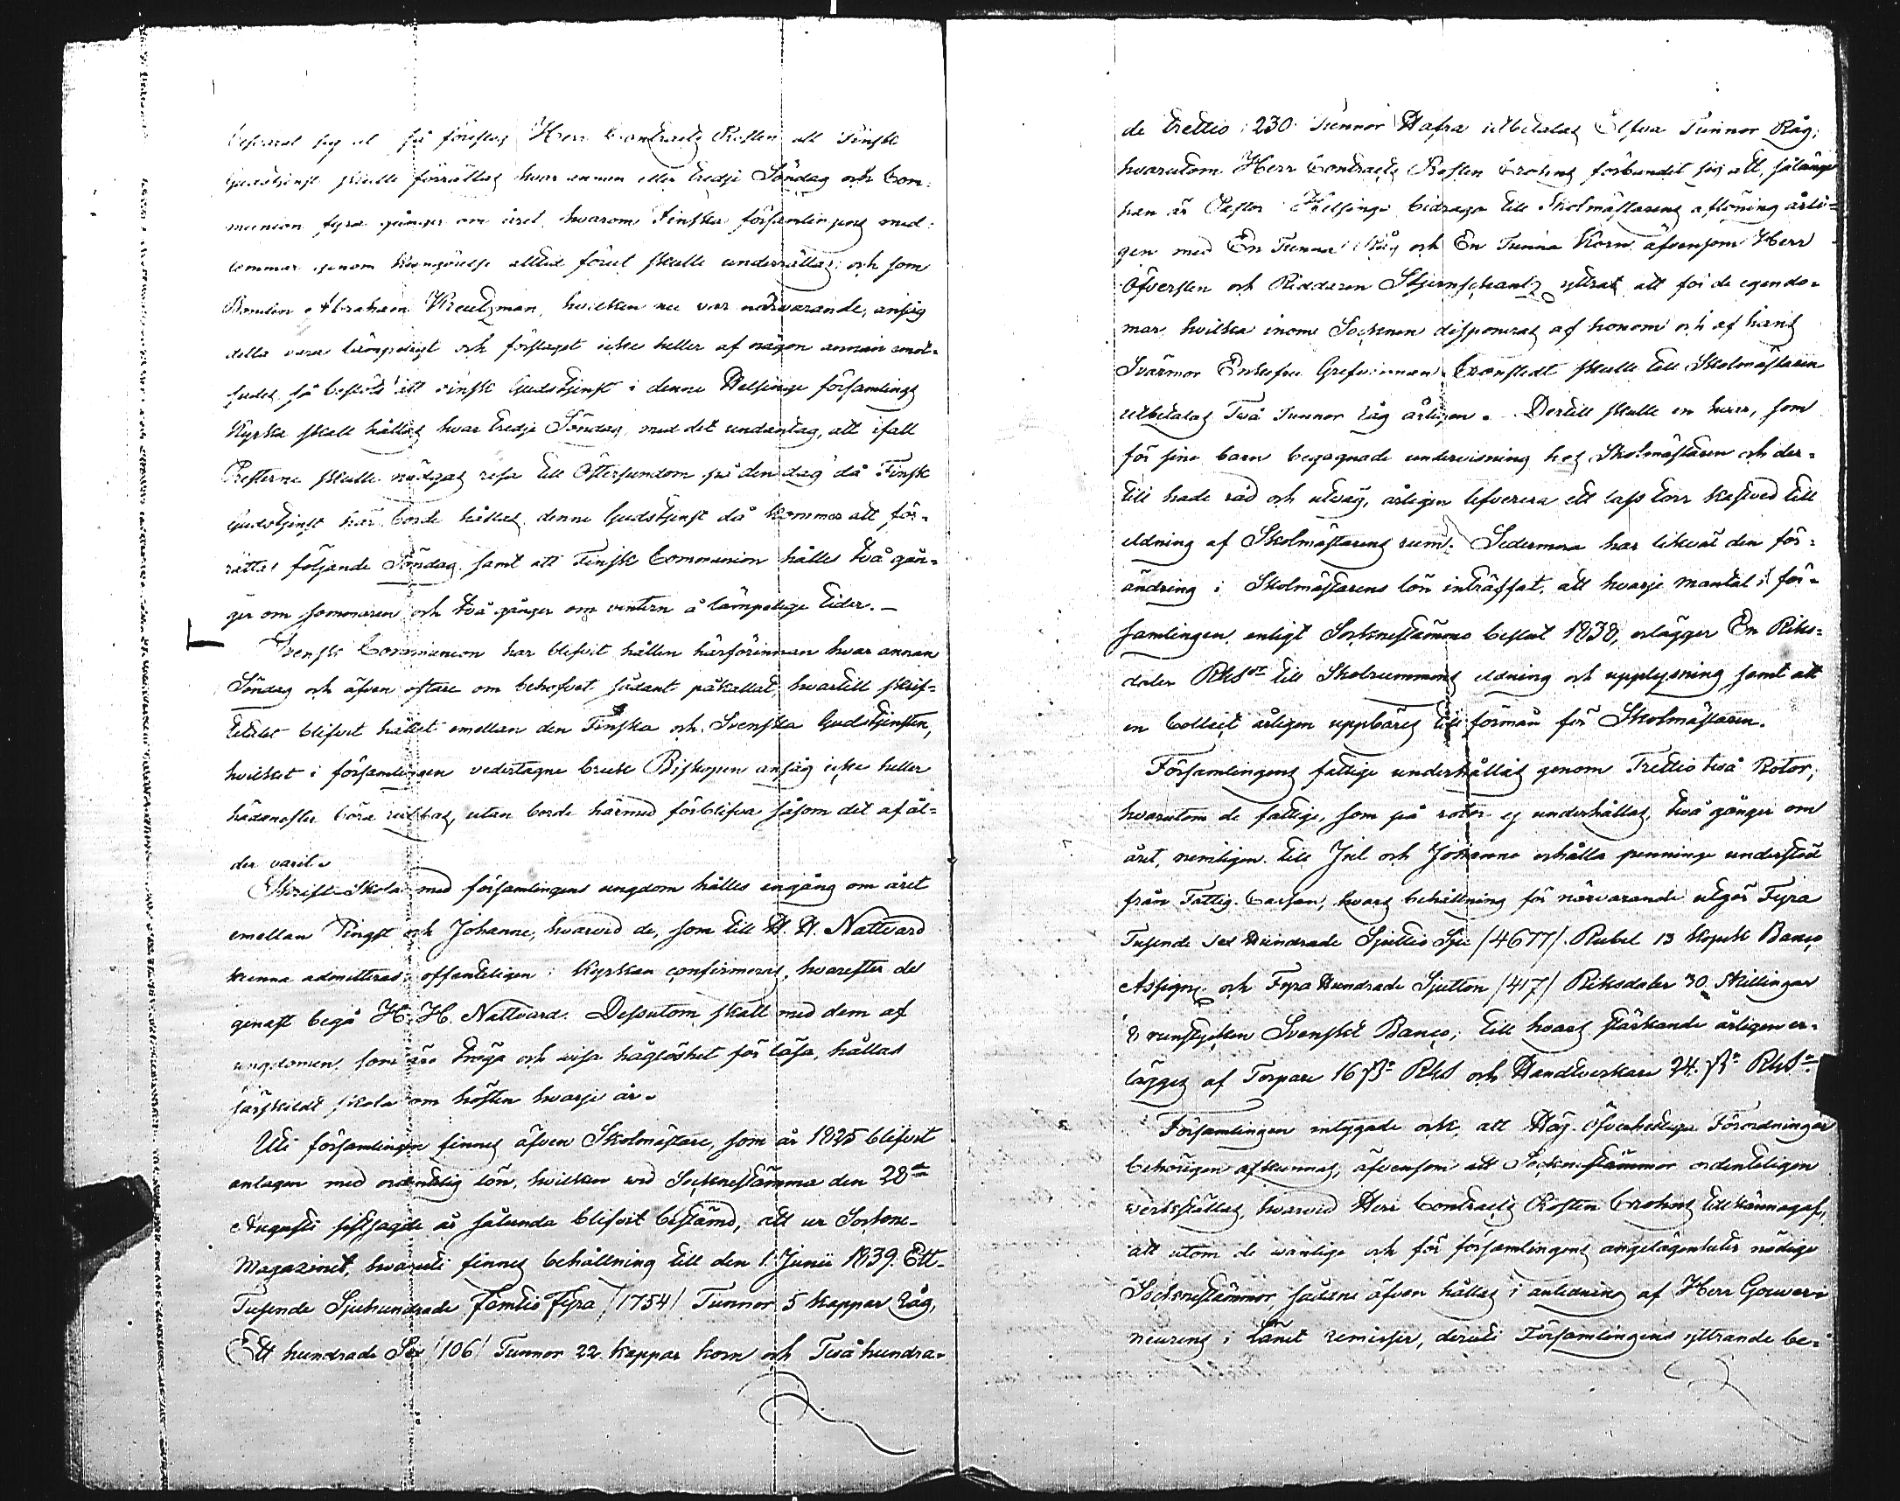 sig at på förslag Herr Contracts Prosten att Finsk
Gudstjenst skulle förrättas hvar annan eller tredje Söndag och Com-
munion fyra gånger om året, hvarom Finska församlingens med-
lemmar genom kungörelse alltid förut skulle underrättas; och som
Bonden Abraham Kreutzman, hvilken nu var närvarande, ansåg
detta vara lämpeligt och förslaget icke heller af någon annan
så beslöts att Finsk Gudstjenst i denne Helsinge församlings
Kyrka skall hållas hvar tredje Söndag, med det undantag, att ifall
Presterne skulle nödgas resa till Östersundom på den dag då Finsk
Gudstjenst här borde hållas, denne Gudstjenst då kommer att för-
rättas följande Söndag, samt att Finsk Communion hålles två gån-
ger om sommaren och två gånger om vintern å lämpelige tider. –
Svensk Communion har blifvit hållen härförinnan hvar annan
Söndag och äfven oftare om behofvet sådant påkallat, hvartill skrif-
termålet blifvit hållet emellan den Finska och Svenska Gudstjensten,
hvilket i församlingen vedertagne bruk Biskopen ansåg icke heller
hädanefter böra rubbas, utan borde härmed förblifva såsom det af ål-
der varit.
Skrift-Skola med församlingens ungdom hålles engång om året
emellan Pingst och Johanne, hvarvid de, som till H. H. Nattvard
kunna admitteras, offenteligen i Kyrkan confirmeras, hvarefter de
genast begå H. H. Nattvard. Dessutom skall med dem af
ungdomen, som äro tröga och visa håglöshet för läsa, hållas
särskildt skola om hösten hvarje år.
Uti församlingen finnes äfven Skolmästare, som år 1825 blifvit
antagen med ordentelig lön, hvilken vid Socknestämma den 28de
Augusti sistsagde år sålunda blifvit bestämd, att ur Sockne-
Magazinet, hvaruti finnes behållning till den 1. Junii 1839. Ett-
Tusende Sjuhundrade femtio fyra /1754/ Tunnor 5 kappar Råg,
Ett hundrade Sex /106/ Tunnor 22 kappar korn och Två hundra-
de trettio /230/ Tunnor Hafra utbetalas Elfva Tunnor Råg;
hvarutom Herr Contracts Prosten Crohns förbundet sig att, sålänge
han är Pastor i Helsinge bidraga till Skolmästarens aflöning årli-
gen med En Tunna Råg och En Tunna Korn, äfvensom Herr
Öfversten och Riddaren Stjernschantz yttrat, att för de egendo-
mar, hvilka inom Socknen disponeras af honom och af hans
Svärmor Enkefru Grefvinnan Cronstedt skulle till Skolmästaren
utbetalas Två Tunnor råg årligen. Dertill skulle en hvar, som
för sine barn begagnade undervisning hos Skolmästaren och der-
till hade råd och utväg, årligen lefverera ett lass torr kastved till
eldning af Skolmästarens rum. Sedermera har likväl den för-
ändring i Skolmästarens lön inträffat, att hvarje mantal i för-
samlingen, enligt Socknestämmo beslut 1838, erlägger En Riks-
daler Rksr till Skolrummens eldning och upplysning samt att
en Collect årligen uppbäres till förmån för Skolmästaren.
Församlingens fattige underhållas genom Trettio två Rotor,
hvarutom de fattige, som på rotor ej underhållas, två gånger om
året, nemligen till Jul och Johanne erhålla penninge understöd
från Fattig-Cassan, hvars behållning för närvarande utgör Fyra
Tusende Sex Hundrade Sjuttio Sju /4677/ Rubel 13 Kopek Banco
Assigns. och Fyra Hundrade Sjutton /417/ Riksdaler 30 Skillingar
8 runstycken Svenskt Banco; till hvars stärkande årligen er-
lägges af Torpare 16 ß Rks och Handtverkare 24 ß Rks.
Församlingen intygade ock, att Höga Öfverhetliga Förordningar
behörigen afkunnas, äfvensom att Socknestämmor ordenteligen
verkställas, hvarvid Herr Contracts Prosten Crohns tillkännagaf,
att utom de vanlige och för församlingens angelägenheter nödige
Socknestämmor, sådane äfven hållas i anledning af Herr Gouver-
neurens i Länet remisser, deruti Församlingens yttrande be-